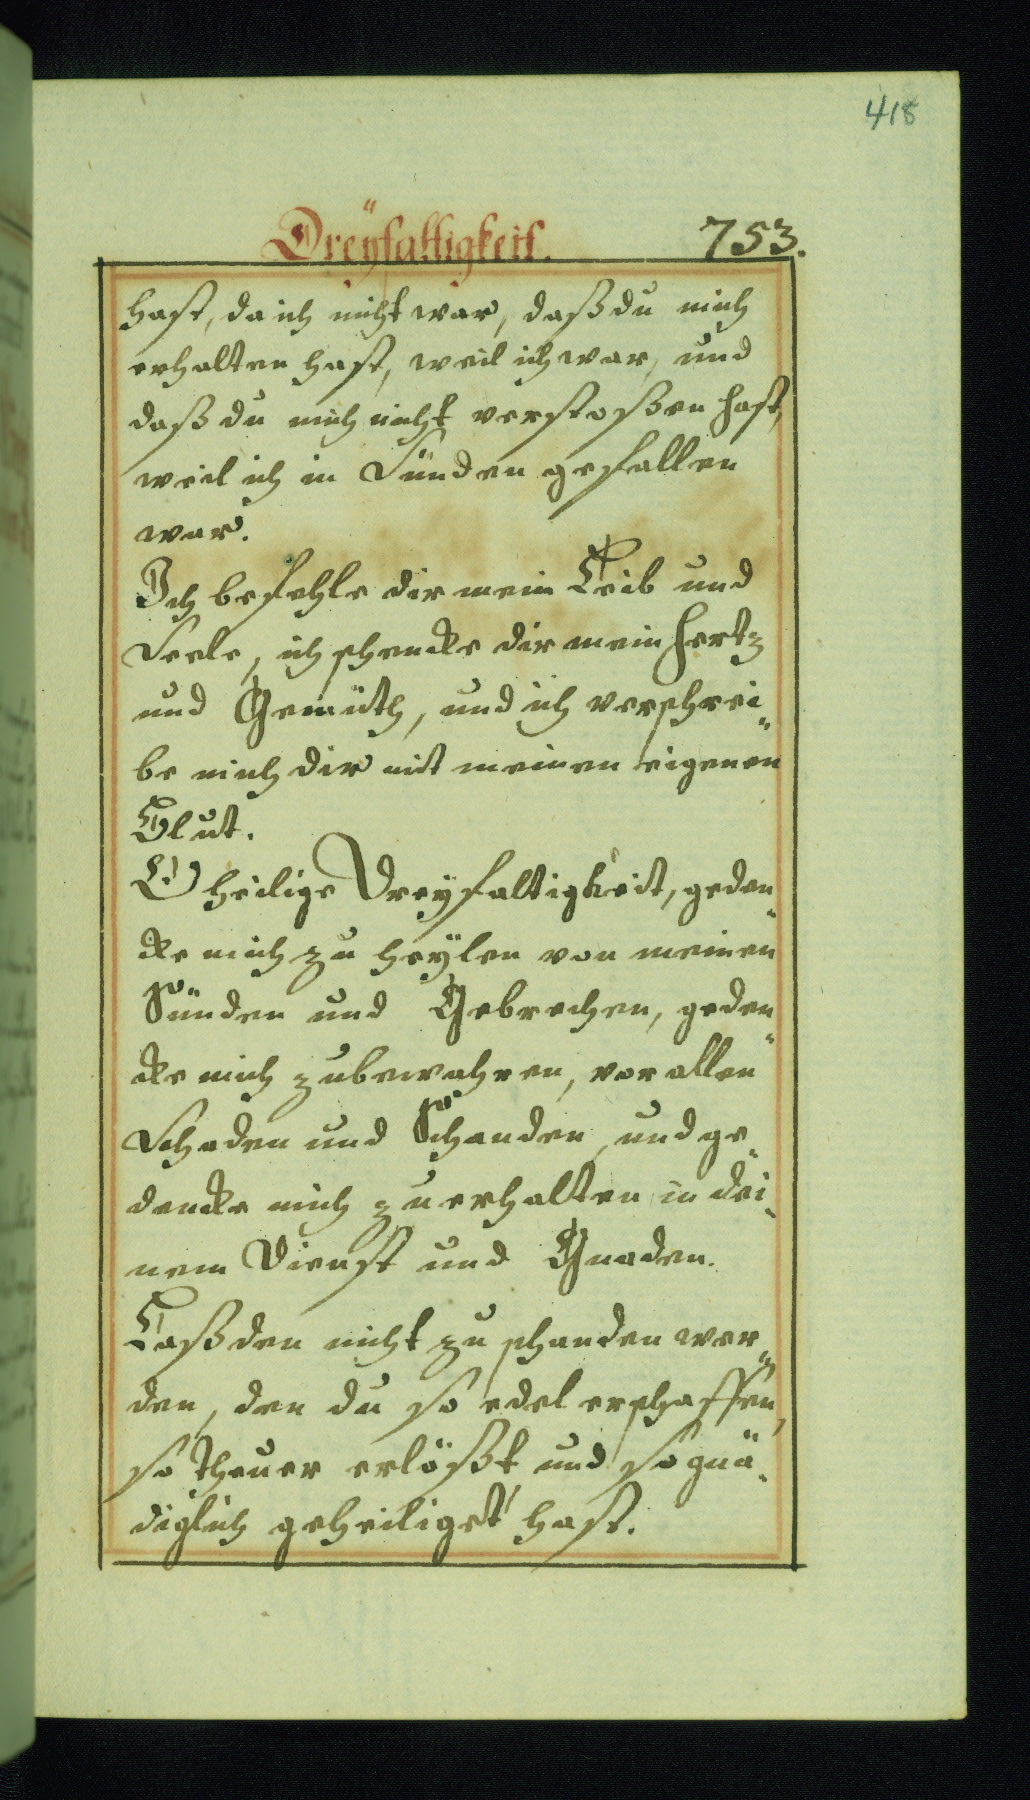 418
Dreÿfaltigkeit. 753.
hast, da ich nicht war, daß du mich
erhalten hast, weil ich war, und
daß du mich nicht verstoßen hast,
weil ich in Sünden gefallen
war.
Ich befehle dir mein Leib und
Seele, ich schencke dir mein Hertz
und Gemüth, und ich verschrei„
be mich dir mit meinen eigenen
Blut.
O heilige Dreÿfaltigkeit, geden„
cke mich zu heÿlen von meinen
Sünden und Gebrechen, geden„
cke mich zubewahren, vor allen
Schaden und Schanden, und ge„
dencke mich zu erhalten in dei„
nem Dienst und Gnaden.
Laß den nicht zu schanden wer„
den, den du so edel erschaffen,
so theuer erlößt und so gnä„
diglich geheiliget hast.